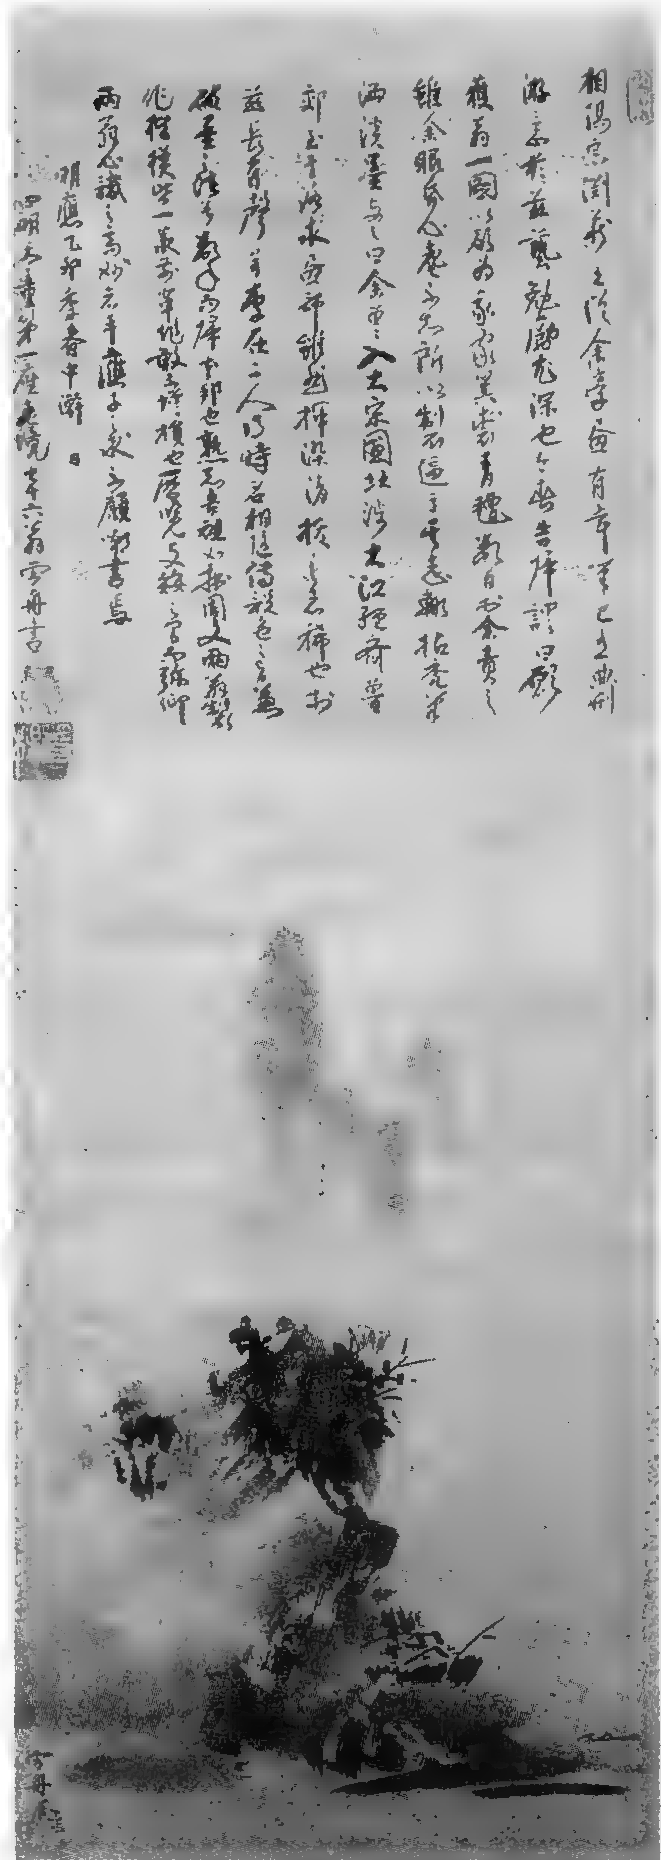 相陽宗淵蔵主従余学画有年筆已有典刑
游意於茲藝勉勵尤深也今春告帰謂曰願
獲翁一図以欲為家々箕裘青氈数日於余責之
雖余眼昏心耄不知所以製不逼于其志輙拈禿筆
洒淡墨与之曰余曽入大宋国北渉大江経斉魯
郊至于洛求画師雖然揮染清抜之者稀也於
茲長有声并李在二人得時名相随伝設色之旨兼
破墨之法兮数年而帰本邦也熟知吾祖如拙周文両翁製
作楷模皆一承前輩作敢不増損也歴覧支倭之間而弥仰
両翁心識之高妙者乎應子之求不顧嘲書焉
明應乙卯季春中澣日
四明天童第一座老境七十六翁雪舟書